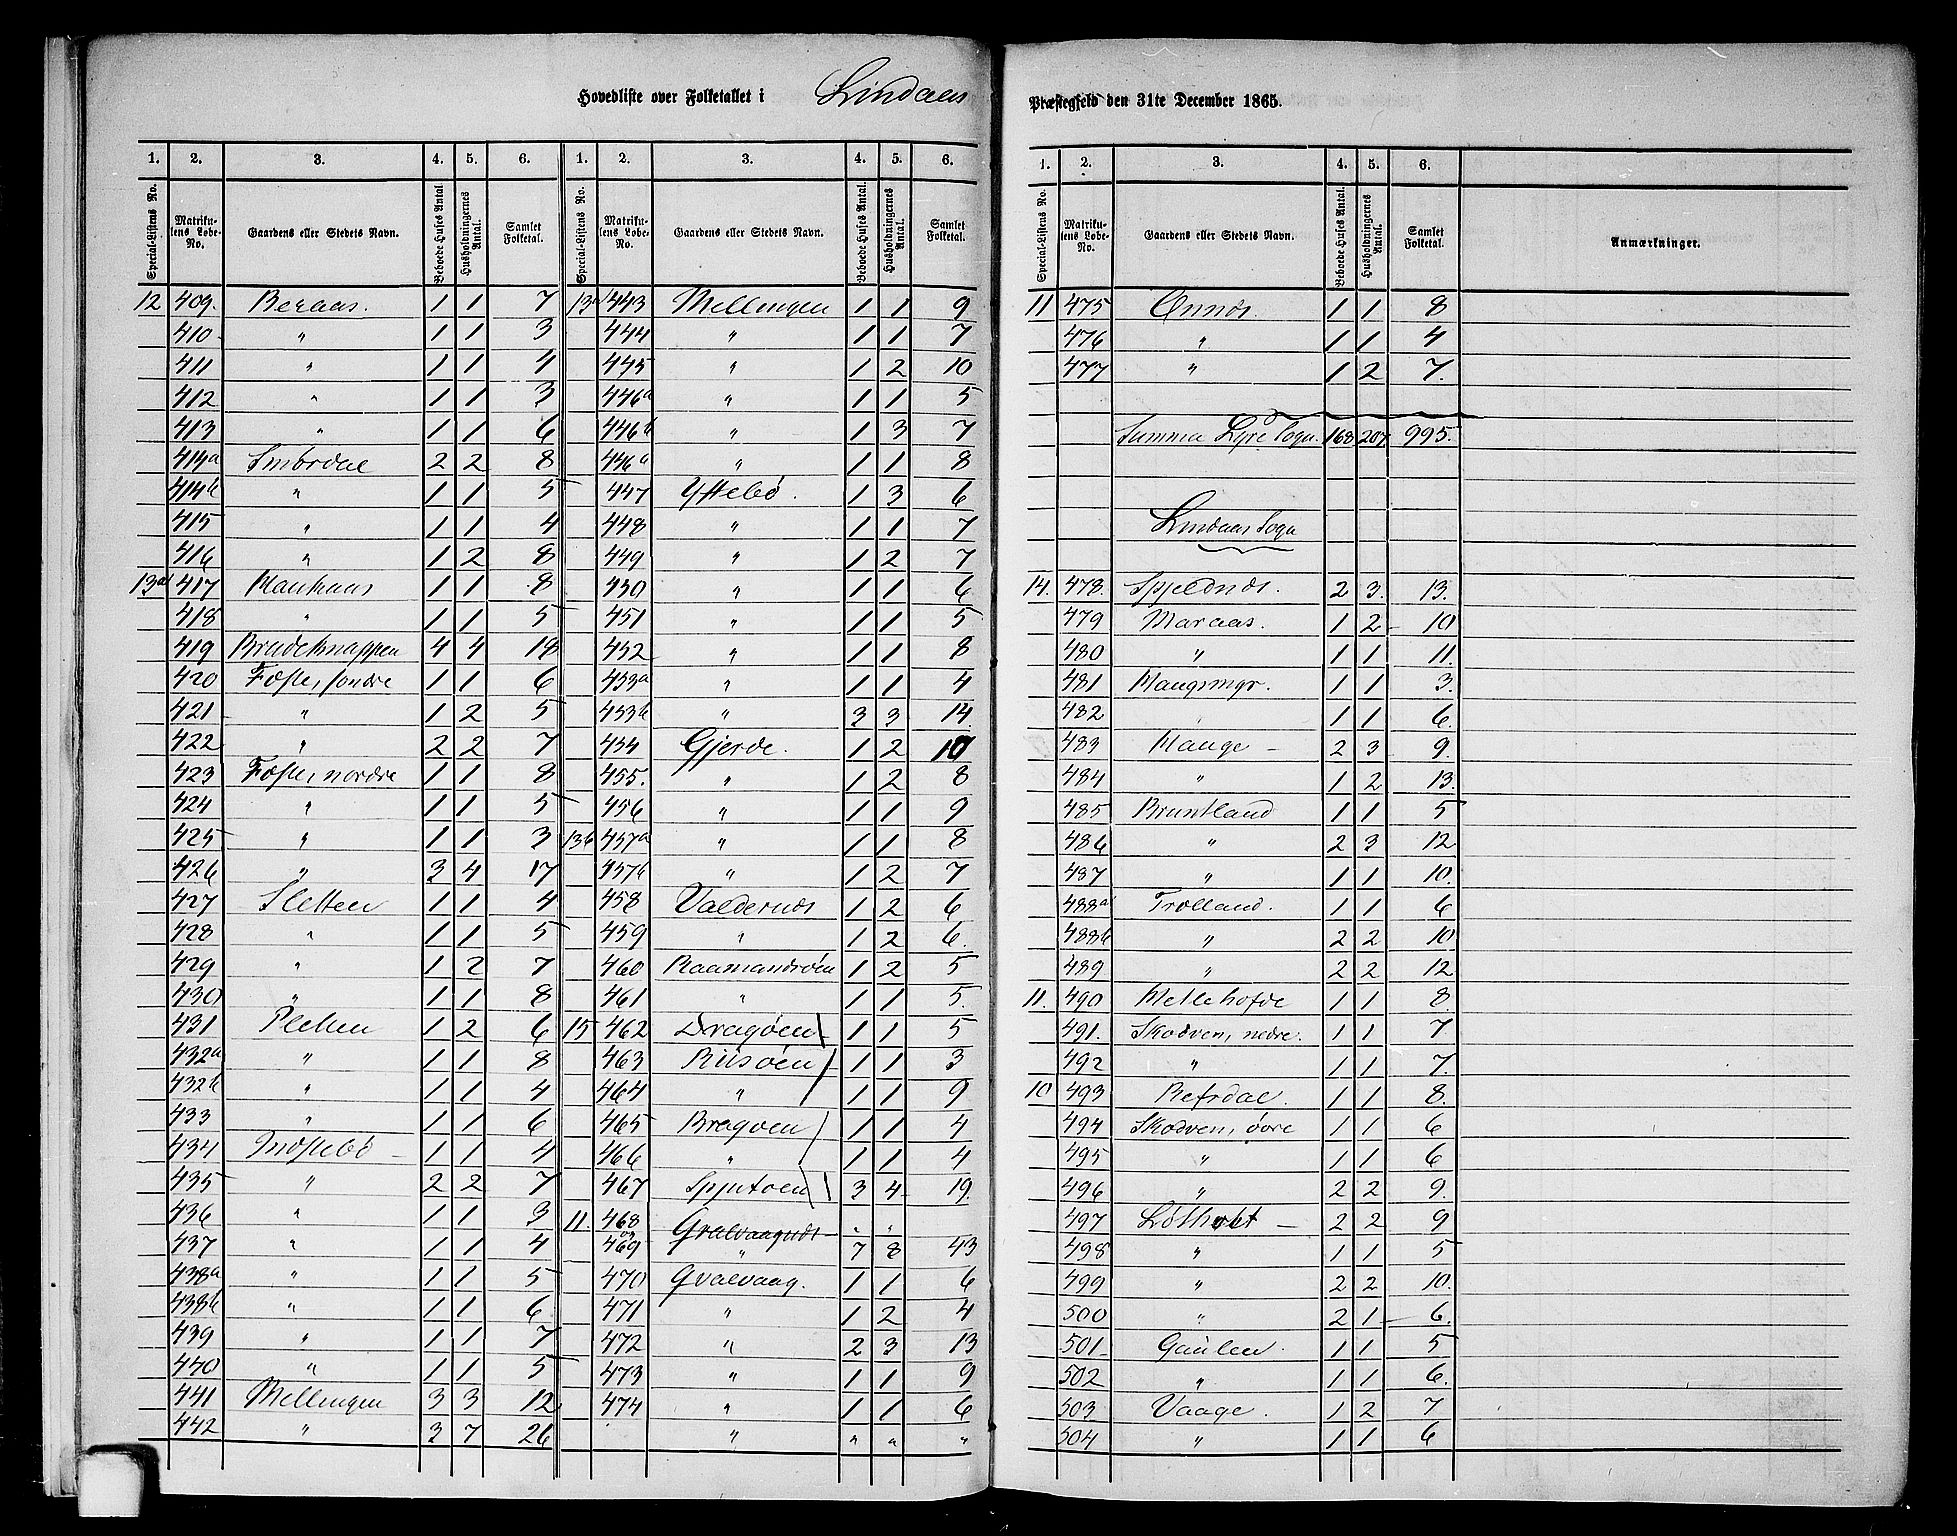 Hovedliste over Folketallet i Lindaas
Præstegjeld den 31te December 1865.
1. 2. 3. 4. 5. 6. 1. 2. 3. 4. 5. 6.
Special-Listens No. Matrikulens Løbe-No. Gaardens eller Stedets Navn. Beboede Huses Antal. Husholdningernes Antal. Samlet Folketal. Special-Listens No. Matrikulens Løbe-No. Gaardens eller Stedets Navn. Beboede Huses Antal. Husholdningernes Antal. Samlet Folketal.
12 409. Beraas. 1 1 7 13a 443 Mellingen 1 1 9
410 " 1 1 3 444 " 1 1 7
411 " 1 1 4 445 " 1 2 10
412 " 1 1 3 446a " 1 1 5
413 " 1 1 6 446b " 1 3 7
414a Smørdal 2 2 8 446c " 1 1 8
414b " 1 1 5 447 Yttebø. 1 3 6
415 " 1 1 4 448 " 1 1 7
416 " 1 2 8 449 " 1 2 7
13a 417 Haukaas 1 1 8 450 " 1 1 6
418 " 1 1 5 451 " 1 1 5
419 Bradeknappen 4 4 18 452 " 1 1 8
420 Foste, søndre 1 1 6 453a " 1 1 4
421 " 1 2 5 453b " 3 3 14.
422 " 2 2 7 454 Gjerde. 1 2 10
423 Foste, nordre 1 1 8 455. " 1 2 8
424 " 1 1 5 456 " 1 1 9
425 " 1 1 3 13b 457a " 1 1 8
426 " 3 4 17 457b " 1 2 7
427 Sletten 1 1 4 458 Valdernæs 1 2 6
428 " 1 1 5 459 " 1 2 6.
429 " 1 2 7 460 Kaamandsøen 1 2 5
430 " 1 1 8 461 " 1 1 5.
431 Pletten 1 2 6 15 462 Dragøen 1 1 5
432a " 1 1 8 463 Riisøen 1 1 3
432b " 1 1 4 464 " 1 1 9
433 " 1 1 6 465 Bragøen 1 1 4
434 Indstebø 1 1 4 466 " 1 1 4
435 " 2 2 7 467 Spjutøen 3 4 19.
436 " 1 1 3 11. 468 Gvalvaagnæs " "
437 " 1 1 4 469 " 7 8 43
438a " 1 1 5 470 Gvalvaag. 1 1 6
438b " 1 1 6 471 " 1 2 4
439 " 1 1 7 472 " 2 3 13
440 " 1 1 5 473 " 1 1 9
441 Mellingen 3 3 12 474 " 1 1 6
442 " 3 7 26 " " " "
1. 2. 3. 4. 5. 6.
Special-Listens No. Matrikulens Løbe-No. Gaardens eller Stedets Navn. Beboede Huses Antal. Husholdningernes Antal. Samlet Folketal. Anmærkninger.
11 475 Onnæs. 1 1 8
476 " 1 1 4
477 " 1 2 7.
Summa Lyre Sogn. 168 207 995.
Lindaas Sogn
14. 478. Spjeldnæs. 2 3. 13.
479 Maraas. 1 2 10
480 " 1 1 11.
481 Haugsmyr. 1 1 3.
482 " 1 1 6.
483 Hauge 2 3 9.
484 " 1 2 13.
485 Bruntland 1 1 5
486 " 2 3 12
487 " 1 1 10.
488a Trølland. 1 1 6
488b " 2 2 10
489 " 2 2 12
11. 490 Hellehofde 1 1 8.
491. Skodven, nedre. 1 1 7
492 " 1 1 7.
10 493 Refsdal. 1 1 8.
494 Skodven, øvre 1 1 6
495 " 1 1 6
496 " 2 2 9.
497 Løtholt 2 2 9
498 " 1 1 5
499 " 2 2 10.
500 " 2 1 6.
501 Gaulen. 1 1 5
502 " 1 1 6.
503 Vaage. 1 2 7
504 " 1 1 6